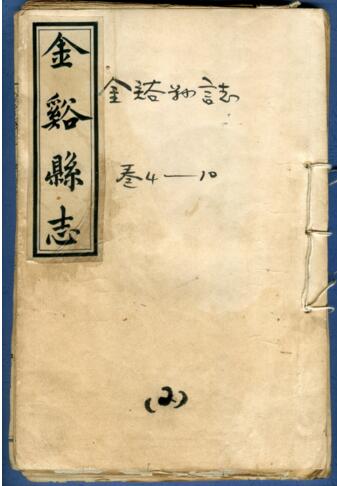 金谿縣志
金谿縣誌
卷4—10
(2)